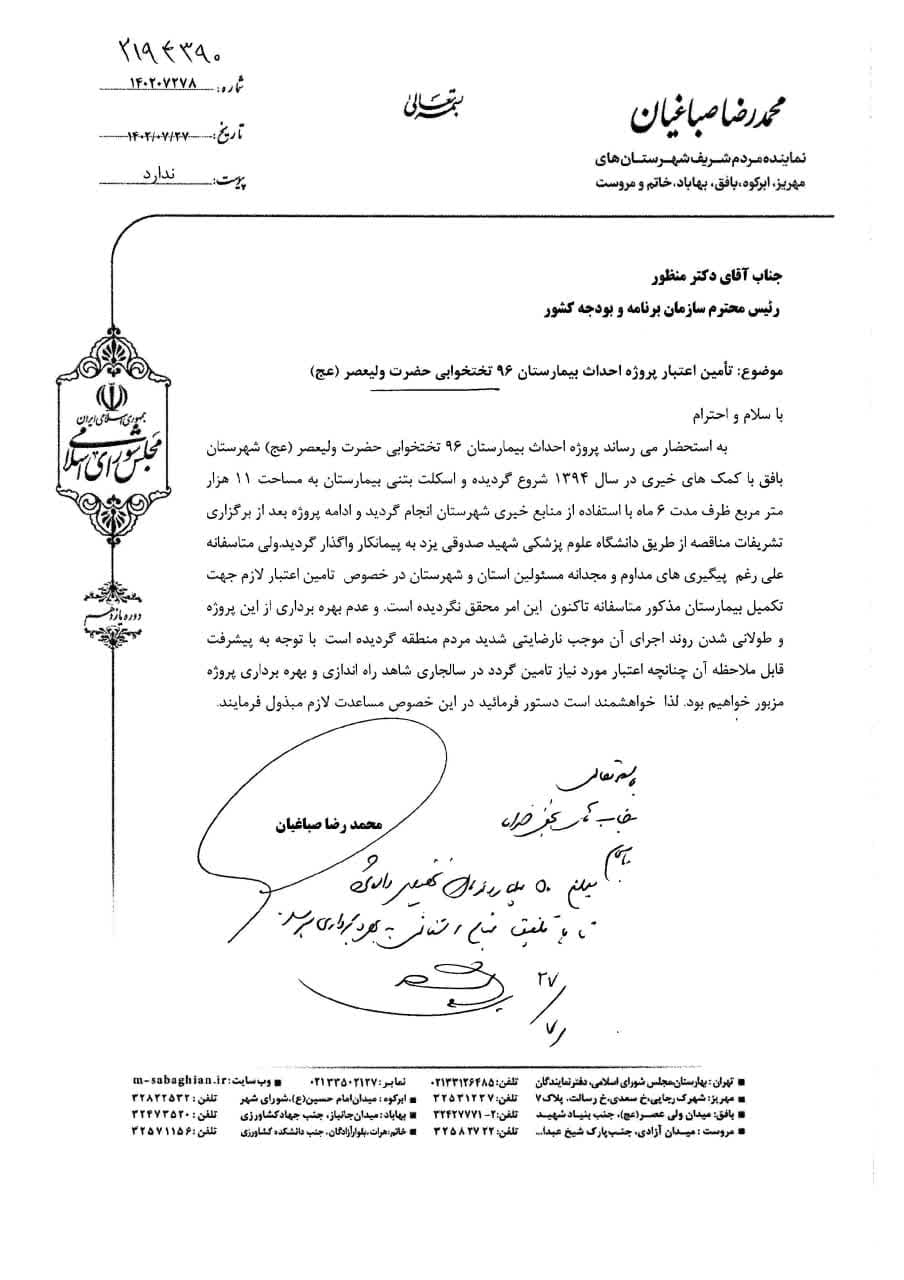 ۲۱۹۴۳۹۰
شماره: ۱۴۰۲۰۷۲۷۸
تاریخ: ۱۴۰۲/۰۷/۲۷
پیوست: ندارد
بسمه تعالی
محمدرضا صباغیان
نماینده مردم شریف شهرستان های
مهریز، ابرکوه، بافق، بهاباد، خاتم و مروست
جمهوری اسلامی ایران
مجلس شورای اسلامی
دوره یازدهم
جناب آقای دکتر منظور
رئیس محترم سازمان برنامه و بودجه کشور
موضوع: تأمین اعتبار پروژه احداث بیمارستان ۹۶ تختخوابی حضرت ولیعصر (عج)
با سلام و احترام
به استحضار می رساند پروژه احداث بیمارستان ۹۶ تختخوابی حضرت ولیعصر (عج) شهرستان
بافق با کمک های خیری در سال ۱۳۹۴ شروع گردیده و اسکلت بتنی بیمارستان به مساحت ۱۱ هزار
متر مربع ظرف مدت ۶ ماه با استفاده از منابع خیری شهرستان انجام گردید و ادامه پروژه بعد از برگزاری
تشریفات مناقصه از طریق دانشگاه علوم پزشکی شهید صدوقی یزد به پیمانکار واگذار گردید.ولی متاسفانه
علی رغم پیگیری های مداوم و مجدانه مسئولین استان و شهرستان در خصوص تامین اعتبار لازم جهت
تکمیل بیمارستان مذکور متاسفانه تاکنون این امر محقق نگردیده است. و عدم بهره برداری از این پروژه
و طولانی شدن روند اجرای آن موجب نارضایتی شدید مردم منطقه گردیده است با توجه به پیشرفت
قابل ملاحظه آن چنانچه اعتبار مورد نیاز تامین گردد در سالجاری شاهد راه اندازی و بهره برداری پروژه
مزبور خواهیم بود. لذا خواهشمند است دستور فرمائید در این خصوص مساعدت لازم مبذول فرمایند.
محمد رضا صباغیان
بسمه تعالی
جناب آقای
با سلام
مبلغ ۵۰ تخصیص داده شود
تا با تلفیق منابع استانی به بهره برداری برسد.
۲۷/۷
تهران: بهارستان،مجلس شورای اسلامی، دفتر نمایندگان تلفن: ۰۲۱۳۳۱۲۶۴۸۵ نمابر: ۰۲۱۳۳۵۰۲۱۲۷ وب سایت: m-sabaghian.ir
مهریز: شهرک رجایی،خ سعدی،خ رسالت، پلاک۷ تلفن: ۳۲۵۳۱۲۳۷ ابرکوه: میدان امام حسین(ع)،شورای شهر تلفن: ۳۲۸۲۲۵۳۲
بافق: میدان ولی عصر(عج)، جنب بنیاد شهید تلفن: ۲-۳۲۴۲۷۷۷۱ بهاباد: میدان جانباز، جنب جهادکشاورزی تلفن: ۳۲۴۷۳۵۲۰
مروست: میدان آزادی، جنب پارک شیخ عبدا... تلفن: ۳۲۵۸۲۷۲۲ خاتم: هرات،بلوارآزادگان، جنب دانشکده کشاورزی تلفن: ۳۲۵۷۱۱۵۶